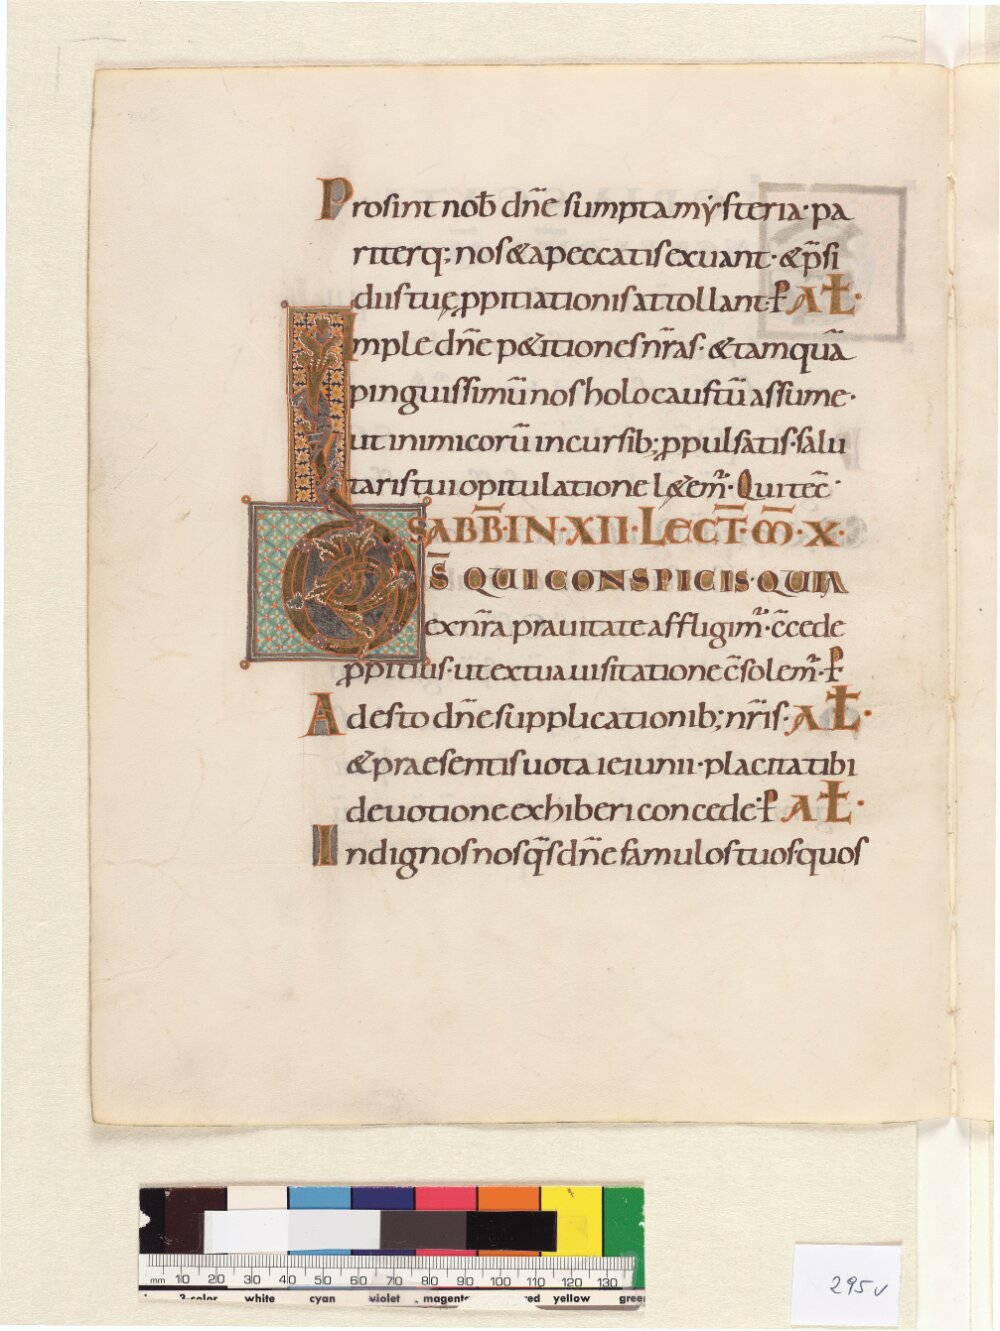 Prosint nob̄ dñe sumpta mẏsteria· pa
riterq; nos & a peccatis exuant· & p̄si
diis tuę ꝓpitiationis attollant· P ALT·
Imple dñe p&itiones nr̃as· & tamquā
pinguissimū nos holocaustū assume·
ut inimicorū incursib; ꝓpulsatis· salu
taris tui opitulatione l&em̃· Qui tec̄·
SABB̄· IN· XII· LECT̄· M̄· X·
DS̄ QUI CONSPICIS· QUIA
ex nr̃a prauitate affligim̃· c̄cede
ꝓpitius· ut ex tua uisitatione c̄solem̃· P
Adesto dñe supplicationib; nr̃is· ALT·
& praesentis uota ieiunii· placita tibi
deuotione exhiberi concede· P ALT·
Indignos nos q̄s dñe famulos tuos quos
mm 10 20 30 40 50 60 70 80 90 100 110 120 130
3-color white cyan violet magenta red yellow green
295v